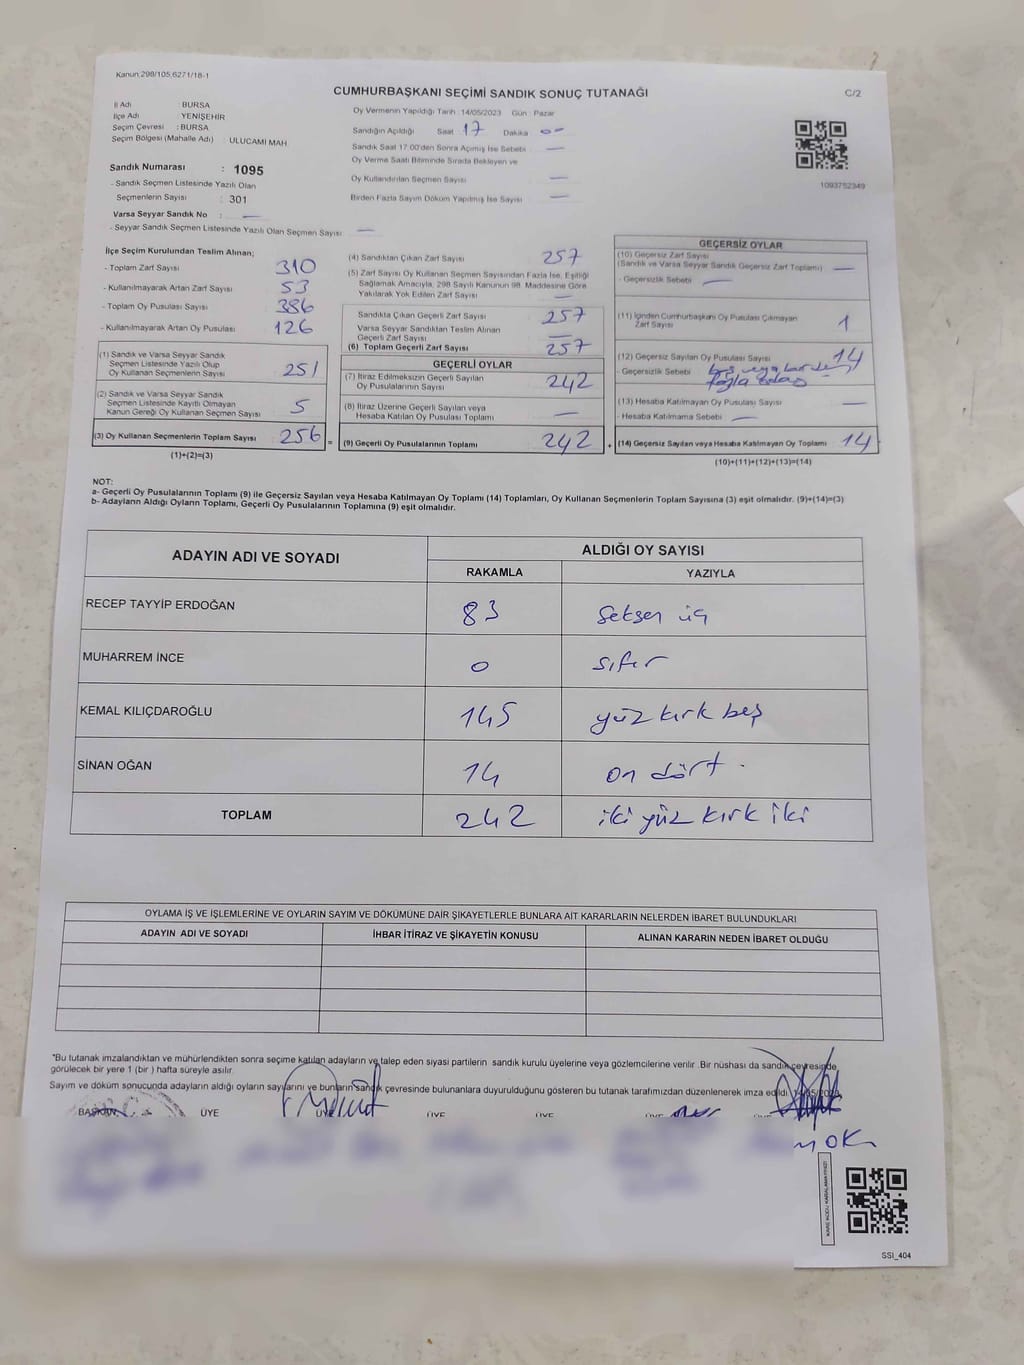 Kanun:298/105,6271/18-1
CUMHURBAŞKANI SEÇİMİ SANDIK SONUÇ TUTANAĞI
C/2
İl Adı : BURSA
İlçe Adı : YENİŞEHİR
Seçim Çevresi : BURSA
Seçim Bölgesi (Mahalle Adı) : ULUCAMİ MAH
Sandık Numarası : 1095
- Sandık Seçmen Listesinde Yazılı Olan
Seçmenlerin Sayısı : 301
Varsa Seyyar Sandık No : —
- Seyyar Sandık Seçmen Listesinde Yazılı Olan Seçmen Sayısı : —
Oy Vermenin Yapıldığı Tarih :14/05/2023 Gün : Pazar
Sandığın Açıldığı Saat : 17 Dakika : 0-
Sandık Saat 17.00'den Sonra Açılmış İse Sebebi : —
Oy Verme Saati Bitiminde Sırada Bekleyen ve
Oy Kullandırılan Seçmen Sayısı : —
Birden Fazla Sayım Döküm Yapılmış İse Sayısı : —
1093752349
İlçe Seçim Kurulundan Teslim Alınan;
- Toplam Zarf Sayısı : 310
- Kullanılmayarak Artan Zarf Sayısı : 53
- Toplam Oy Pusulası Sayısı : 386
- Kullanılmayarak Artan Oy Pusulası : 126
(1) Sandık ve Varsa Seyyar Sandık
Seçmen Listesinde Yazılı Olup
Oy Kullanan Seçmenlerin Sayısı : 251
(2) Sandık ve Varsa Seyyar Sandık
Seçmen Listesinde Kayıtlı Olmayan
Kanun Gereği Oy Kullanan Seçmen Sayısı : 5
(3) Oy Kullanan Seçmenlerin Toplam Sayısı : 256 =
(1)+(2)=(3)
(4) Sandıktan Çıkan Zarf Sayısı : 257
(5) Zarf Sayısı Oy Kullanan Seçmen Sayısından Fazla İse, Eşitliği
Sağlamak Amacıyla, 298 Sayılı Kanunun 98. Maddesine Göre
Yakılarak Yok Edilen Zarf Sayısı : —
Sandıkta Çıkan Geçerli Zarf Sayısı : 257
Varsa Seyyar Sandıktan Teslim Alınan
Geçerli Zarf Sayısı : —
(6) Toplam Geçerli Zarf Sayısı : 257
GEÇERLİ OYLAR
(7) İtiraz Edilmeksizin Geçerli Sayılan
Oy Pusulalarının Sayısı : 242
(8) İtiraz Üzerine Geçerli Sayılan veya
Hesaba Katılan Oy Pusulası Toplamı : —
(9) Geçerli Oy Pusulalarının Toplamı : 242 +
GEÇERSİZ OYLAR
(10) Geçersiz Zarf Sayısı
(Sandık ve Varsa Seyyar Sandık Geçersiz Zarf Toplamı) : —
- Geçersizlik Sebebi : —
(11) İçinden Cumhurbaşkanı Oy Pusulası Çıkmayan
Zarf Sayısı : 1
(12) Geçersiz Sayılan Oy Pusulası Sayısı : 14
- Geçersizlik Sebebi : boş veya birden
fazla
(13) Hesaba Katılmayan Oy Pusulası Sayısı : —
- Hesaba Katılmama Sebebi : —
(14) Geçersiz Sayılan veya Hesaba Katılmayan Oy Toplamı : 14
(10)+(11)+(12)+(13)=(14)
NOT:
a- Geçerli Oy Pusulalarının Toplamı (9) ile Geçersiz Sayılan veya Hesaba Katılmayan Oy Toplamı (14) Toplamları, Oy Kullanan Seçmenlerin Toplam Sayısına (3) eşit olmalıdır. (9)+(14)=(3)
b- Adayların Aldığı Oyların Toplamı, Geçerli Oy Pusulalarının Toplamına (9) eşit olmalıdır.
ADAYIN ADI VE SOYADI
ALDIĞI OY SAYISI
RAKAMLA YAZIYLA
RECEP TAYYİP ERDOĞAN 83 Seksen üç
MUHARREM İNCE 0 sıfır
KEMAL KILIÇDAROĞLU 145 yüz kırk beş
SİNAN OĞAN 14 on dört
TOPLAM 242 iki yüz kırk iki
OYLAMA İŞ VE İŞLEMLERİNE VE OYLARIN SAYIM VE DÖKÜMÜNE DAİR ŞİKAYETLERLE BUNLARA AİT KARARLARIN NELERDEN İBARET BULUNDUKLARI
ADAYIN ADI VE SOYADI İHBAR İTİRAZ VE ŞİKAYETİN KONUSU ALINAN KARARIN NEDEN İBARET OLDUĞU
"Bu tutanak imzalandıktan ve mühürlendikten sonra seçime katılan adayların ve talep eden siyasi partilerin sandık kurulu üyelerine veya gözlemcilerine verilir. Bir nüshası da sandık çevresinde
görülecek bir yere 1 (bir ) hafta süreyle asılır.
Sayım ve döküm sonucunda adayların aldığı oyların sayılarını ve bunların sandık çevresinde bulunanlara duyurulduğunu gösteren bu tutanak tarafımızdan düzenlenerek imza edildi. 14/05/2023
BAŞKAN ÜYE ÜYE ÜYE ÜYE
SSİ_404